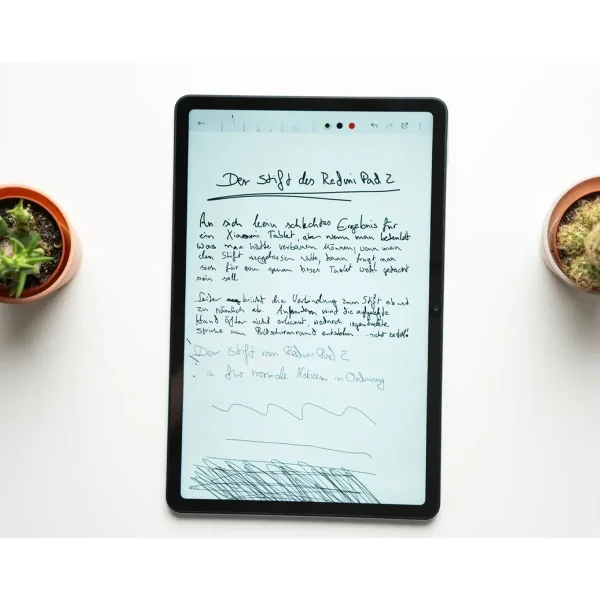 Der Stift des Redmi Pad 2
An sich kein schlechtes Ergebnis für
ein Xiaomi Tablet, aber wenn man bedenkt
was man hätte verbauen können, wenn man
den Stift ausgelassen hätte, dann fragt man
sich für wen genau dieses Tablet wohl gedacht
sein soll
Leider bricht die Verbindung zum Stift ab und
zu nämlich ab. Außerdem wird die aufgelegte
Hand öfter nicht erkannt, wodurch
am Bildschirmrand entstehen
Der Stift vom Redmi Pad 2
is für normale Notizen in Ordnung